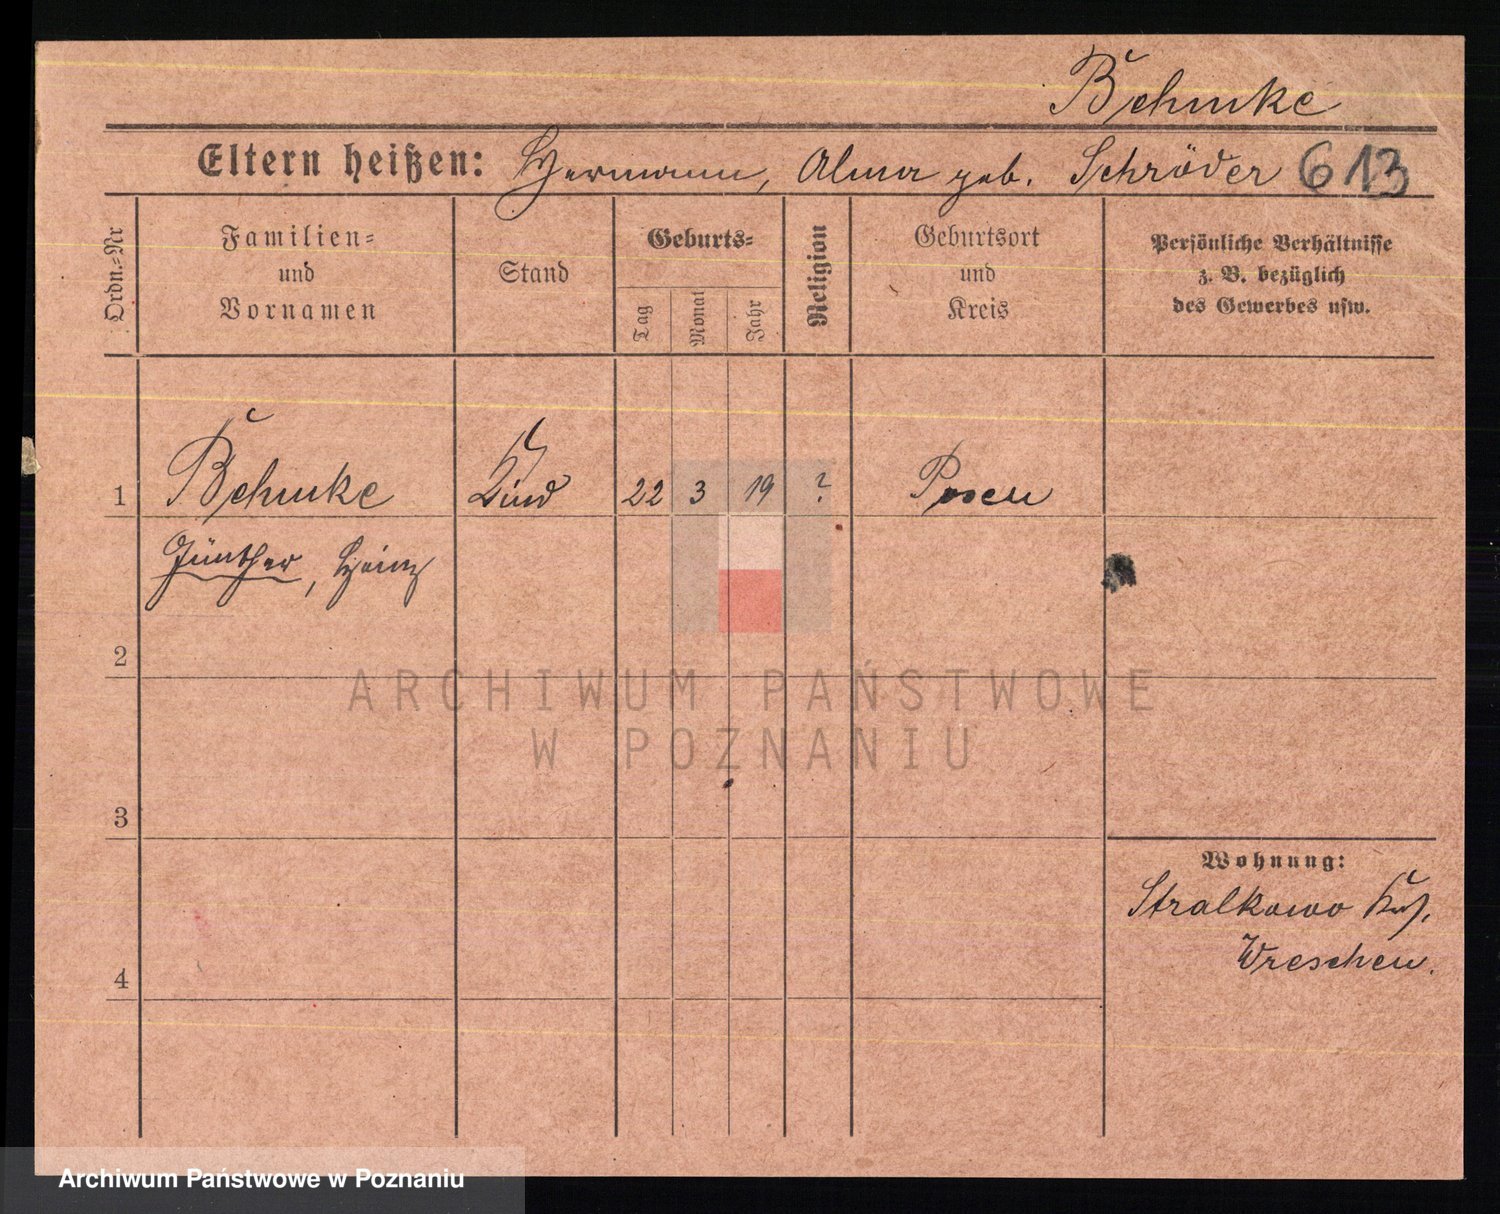 Behmke
Eltern heißen: Hermann, Alma geb. Schröder 613
Ordn.-Nr
Familien-
und
Vornamen
Stand
Geburts-
Tag
Monat
Jahr
Religion
Geburtsort
und
Kreis
Persönliche Verhältnisse
z. B. bezüglich
des Gewerbes usw.
1 Behmke Kind 22 3 19 ? Posen
Günther, Heinz
2
ARCHIWUM PAŃSTWOWE
W POZNANIU
3
Wohnung:
Stralkowo Krs.
Wreschen.
4
Archiwum Państwowe w Poznaniu